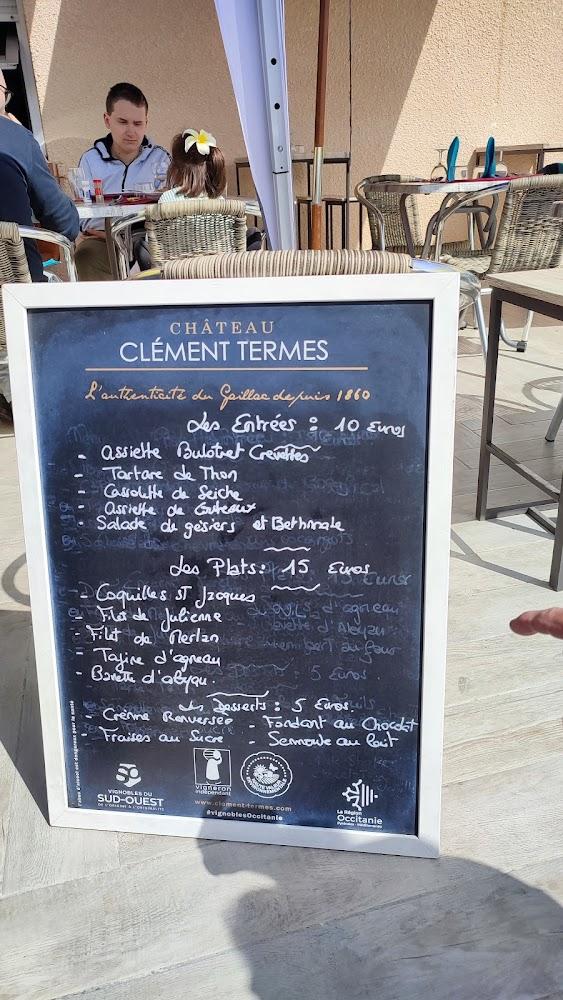 CHÂTEAU
CLÉMENT TERMES
L'authenticité du Gaillac depuis 1860
Les Entrées : 10 Euros
- Assiette Bulot et Crevettes
- Tartare de Thon
- Cassolette de Seiche
- Assiette de Couteaux
- Salade de gésiers et Bethmale
Les Plats : 15 Euros
- Coquilles St Jacques
- Filet de Julienne
- Filet de Merlan
- Tajine d'agneau
- Bavette d'aloyau
Les Desserts : 5 Euros
- Crème Renversée - Fondant au Chocolat
- Fraises au Sucre - Semoule au lait
VIGNOBLES DU
SUD-OUEST
DE L'ORIGINE À L'ORIGINALITÉ
vigneron
indépendant
www.clement-termes.com
#vignoblesOccitanie
La Région
Occitanie
Pyrénées - Méditerranée
L'abus d'alcool est dangereux pour la santé